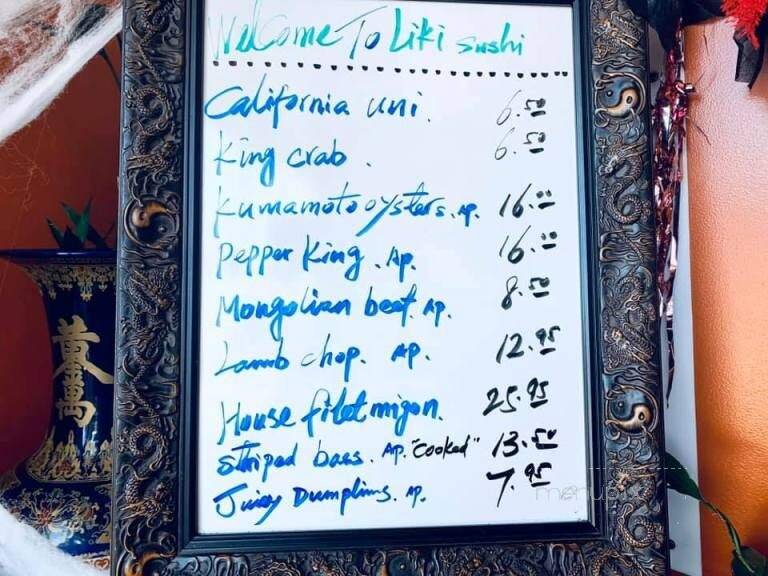 Welcome To Liki Sushi
California uni. 6.50
King crab. 6.50
Kumamoto oysters. Ap. 16.00
Pepper King. Ap. 16.00
Mongolian beef. Ap. 8.50
Lamb chop. Ap. 12.95
House filet migon. 25.95
Striped bass. Ap. "Cooked" 13.50
Juicy Dumplims. Ap. 7.95